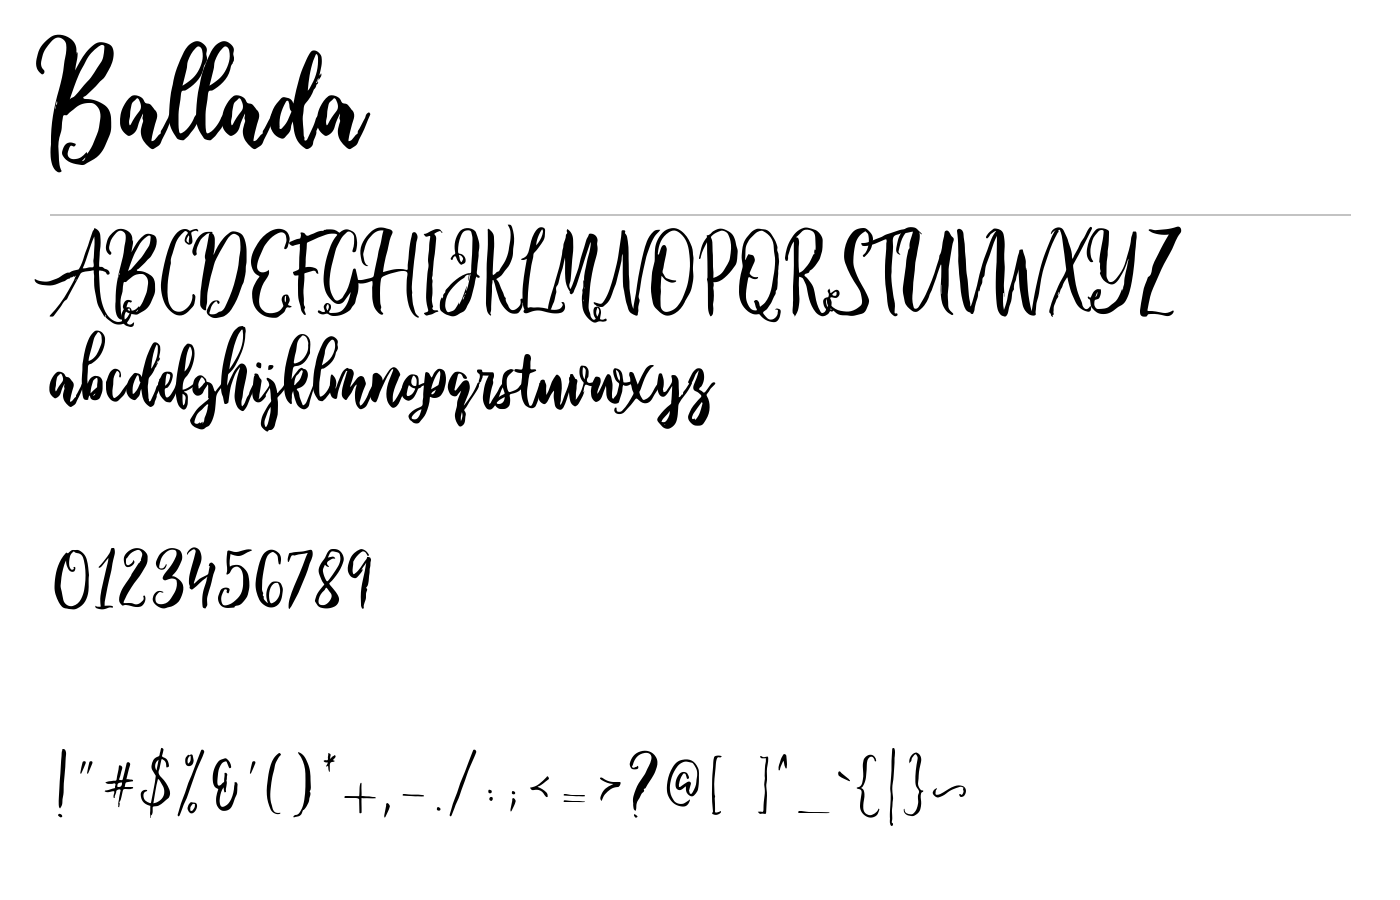 Ballada
ABCDEFGHIJKLMNOPQRSTUVWXYZ
abcdefghijklmnopqrstuvwxyz
0123456789
!"#$%&'()*+,-./:;<=>?@[ ]^_`{|}~